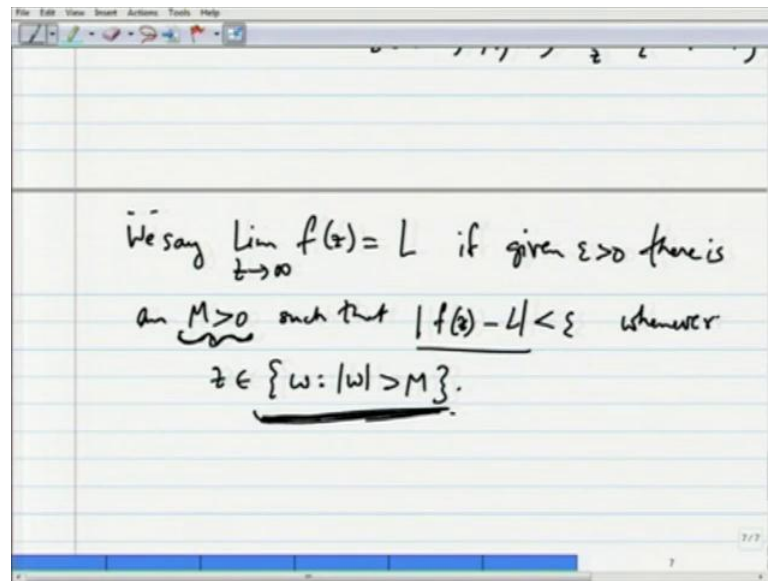 File Edit View Insert Actions Tools Help
We say Lim f(z) = L if given ε>0 there is
z→∞
an M>0 such that |f(z) - L| < ε whenever
z ∈ {w : |w| > M}.
7/7
7